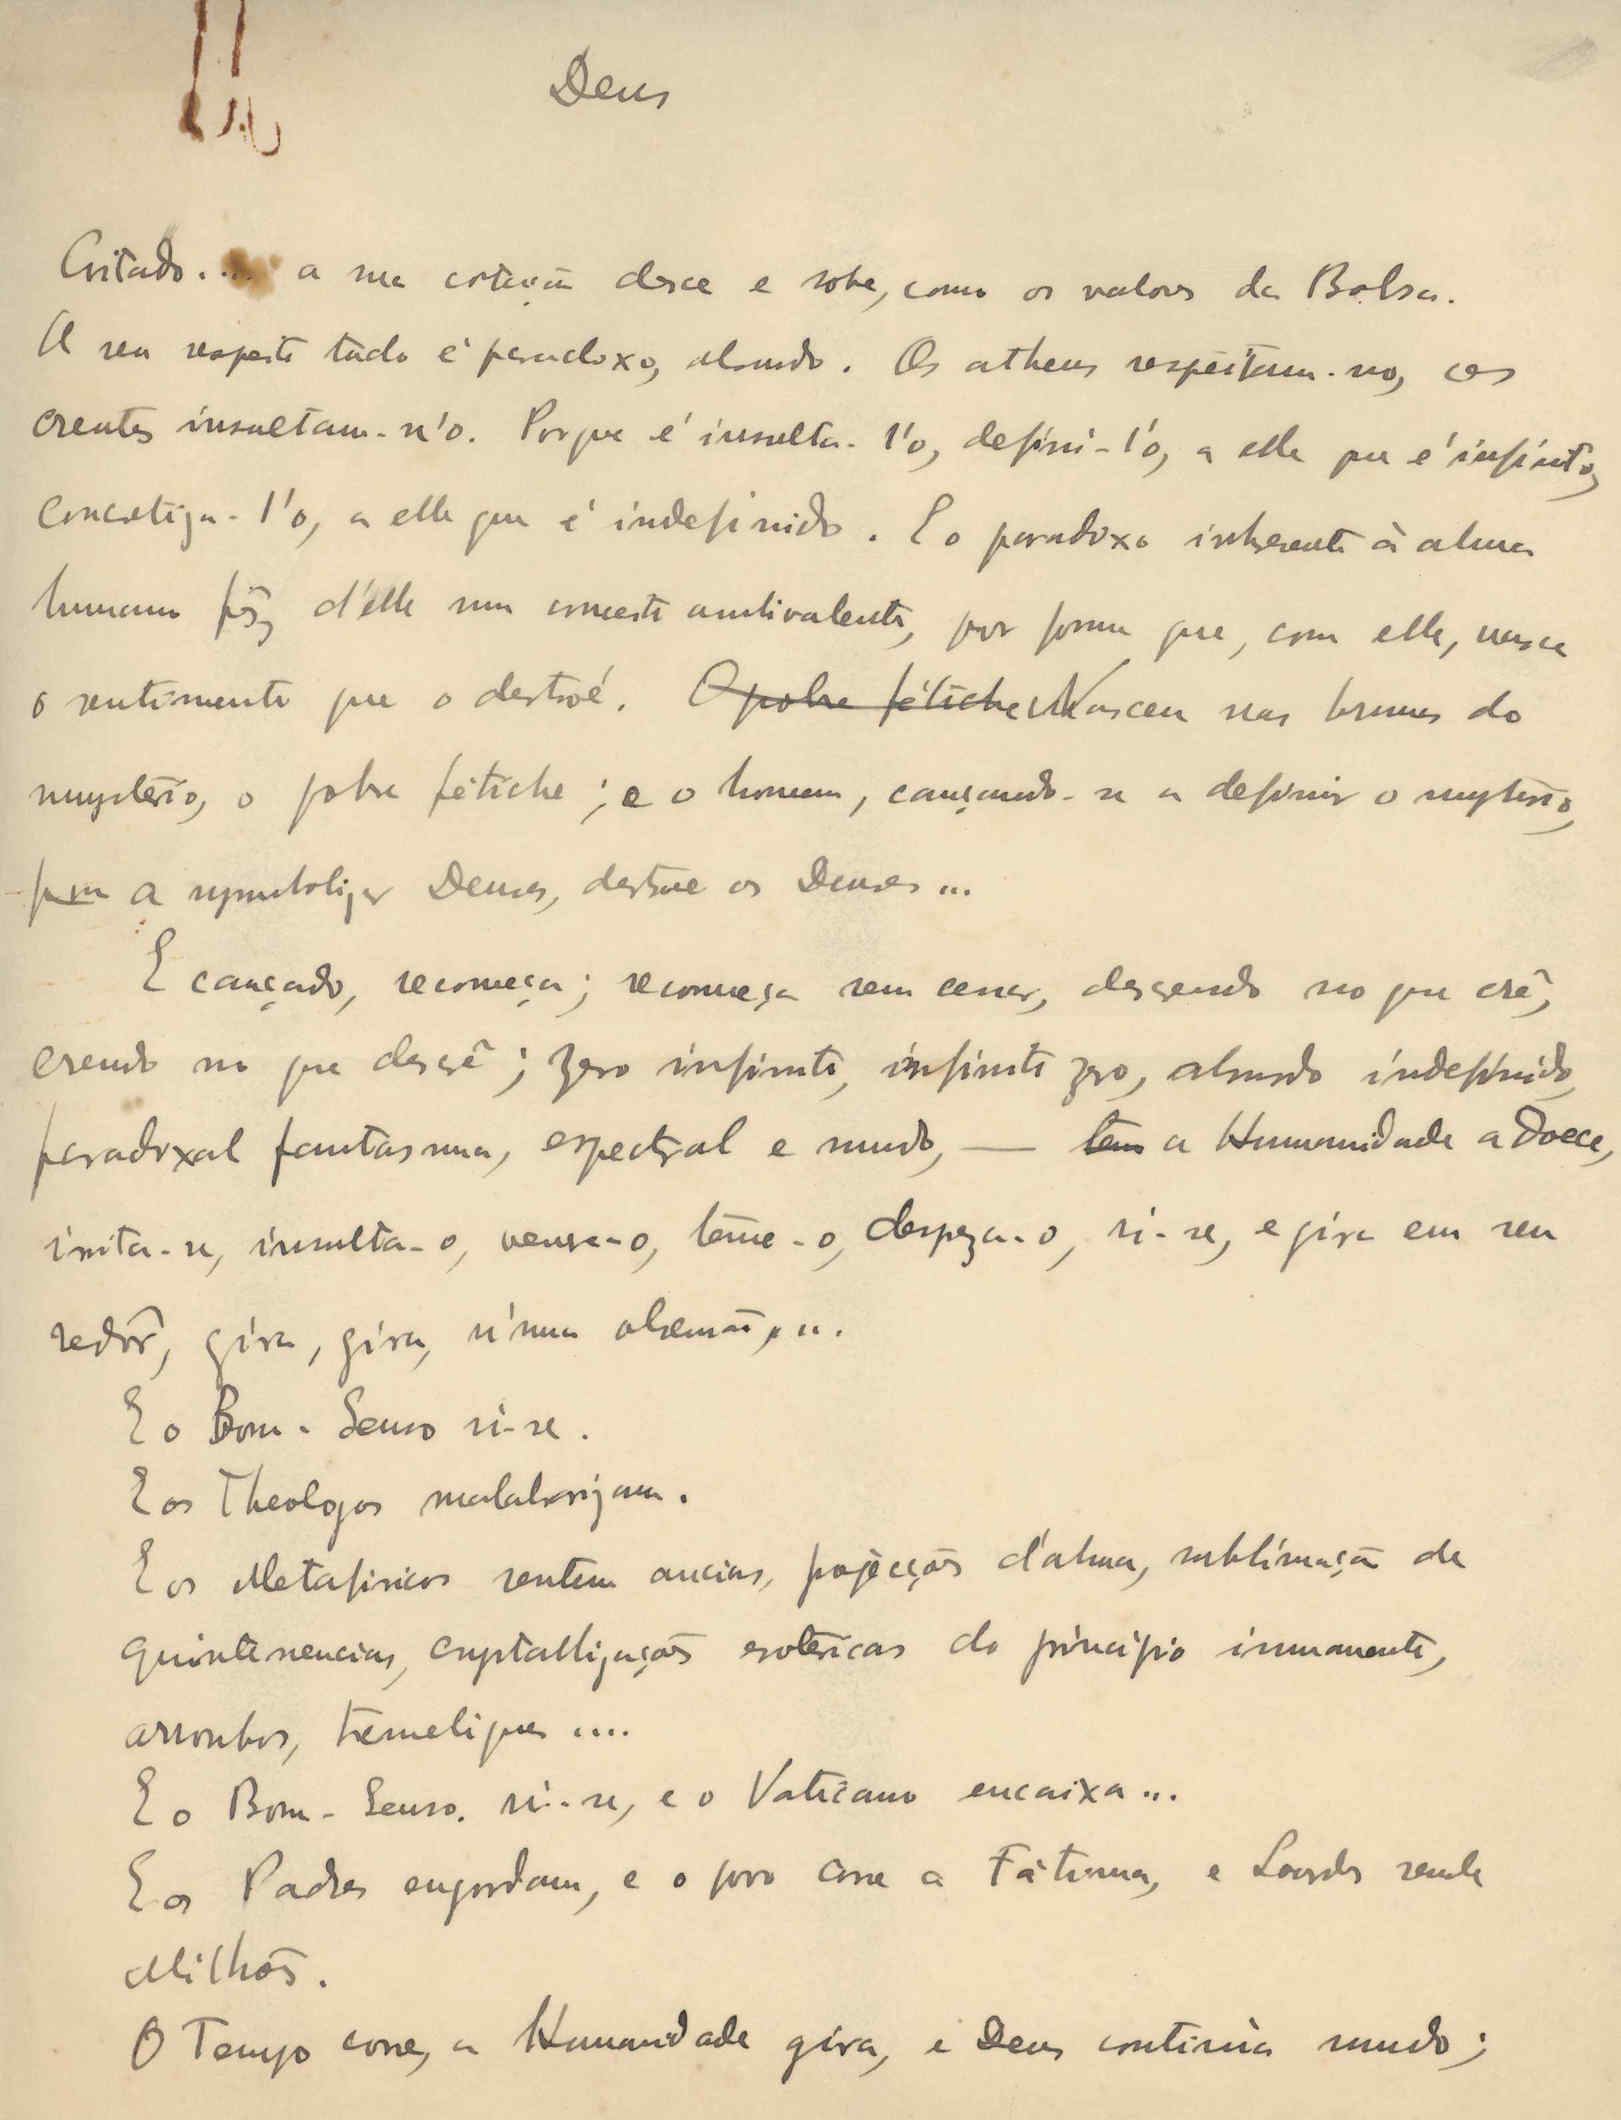 Deus
Coitado.... a sua cotação desce e sobe, como os valores da Bolsa.
A seu respeito tudo é paradoxo, absurdo. Os atheus respeitam-no, os
crentes insultam-n'o. Porque é insulta-l'o, defini-l'o, a elle que é infinito,
concretiza-l'o, a elle que é indefinido. E o paradoxo inherente à alma
humana fêz, d'elle um conceito ambivalente, por forma que, com elle, nasce
o sentimento que o destroé. O pobre fétiche Nasceu nas brumas do
mysterio, o pobre fétiche; e o homem, cançando-se a definir o mysterio,
para a symbolizar Deuses, destroe os Deuses...
E cançado, recomeça; recomeça sem cessar, descrendo no que crê,
crendo no que descrê; Zero infinito, infinito zero, absurdo indefinido,
paradoxal fantasma, espectral e mudo, — tem a Humanidade adoece,
irrita-se, insulta-o, venera-o, teme-o, despreza-o, ri-se, e gira em seu
redôr, gira, gira, n'uma obsessão,...
E o Bom-Senso ri-se.
E os Theologos malabarizam.
E os Metafisicos sentem ancias, projecções d'alma, sublimação de
quintessencias, crystallizações esotericas do principio immanente,
arroubos, tremeliques....
E o Bom-Senso. ri-se, e o Vaticano encaixa...
E os Padres engordam, e o povo corre a Fátima, e Lourdes rende
Milhões.
O Tempo corre, a Humanidade gira, e Deus continúa mudo;